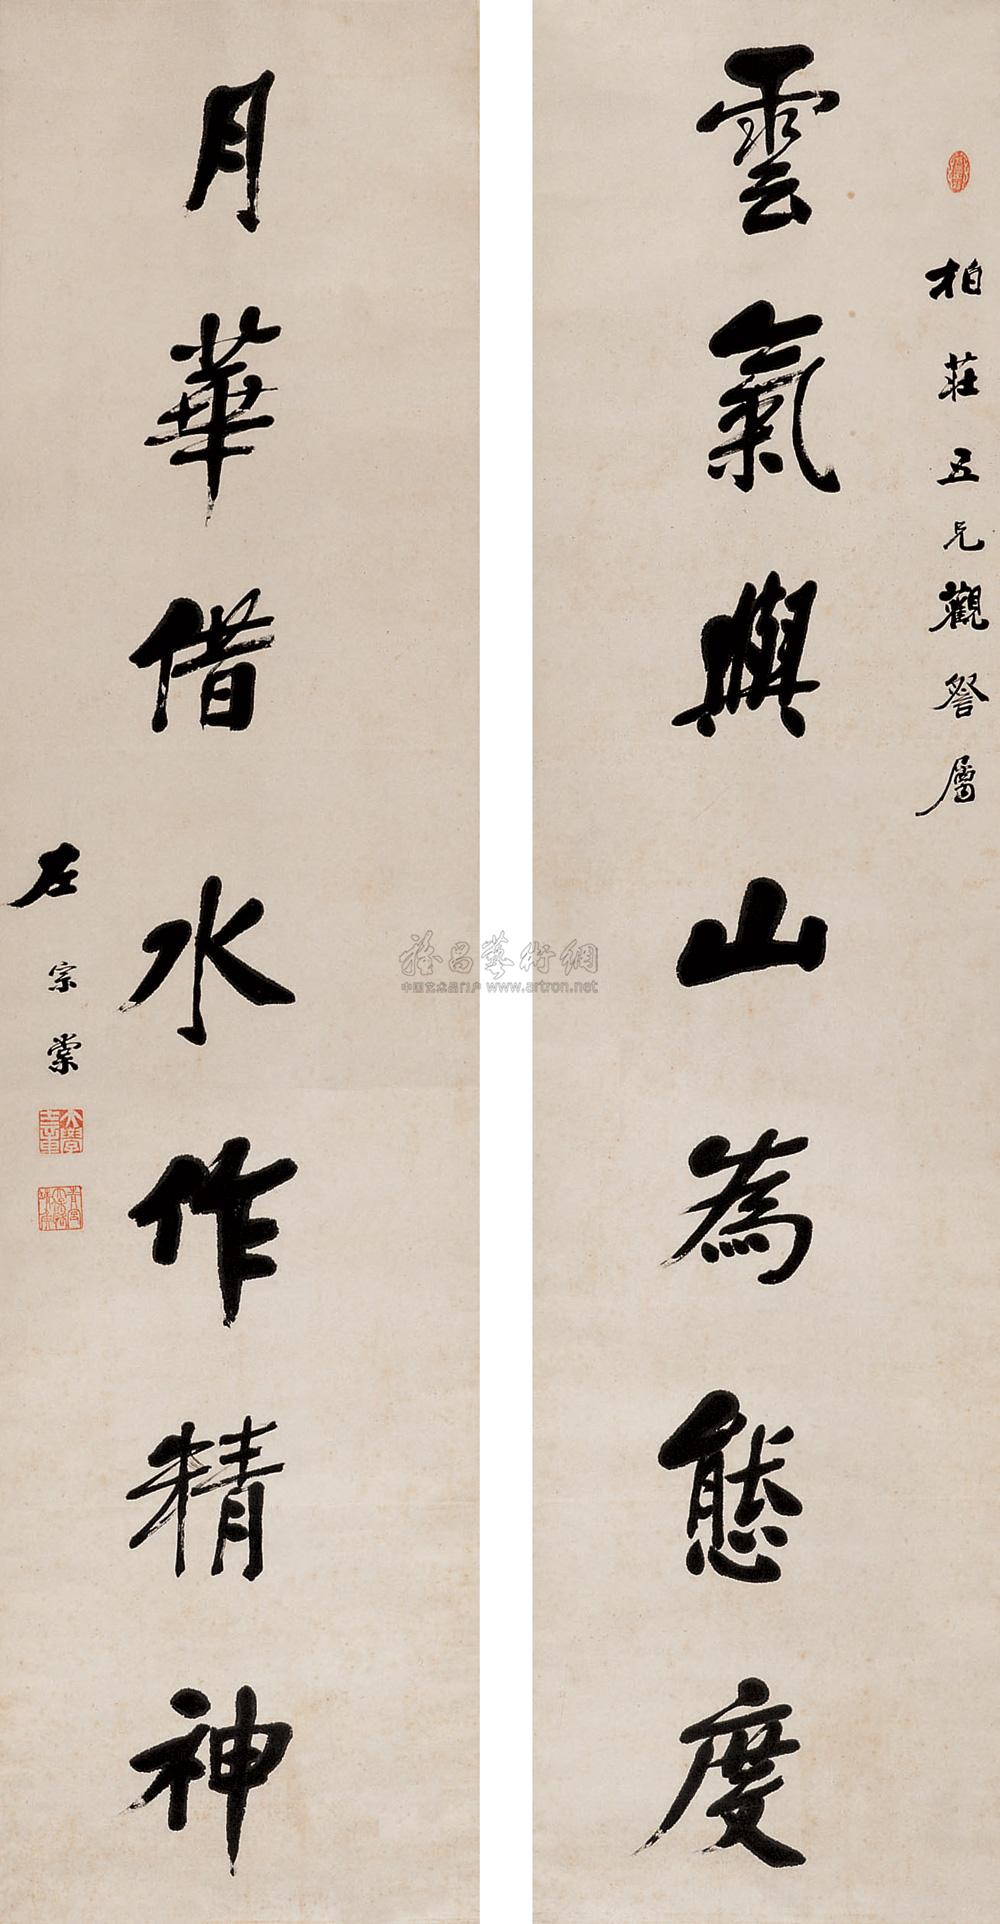 柏莊五兄觀詧屬
雲氣與山為態度
月華借水作精神
左宗棠
雅昌藝術網
中国艺术品门户 www.artron.net